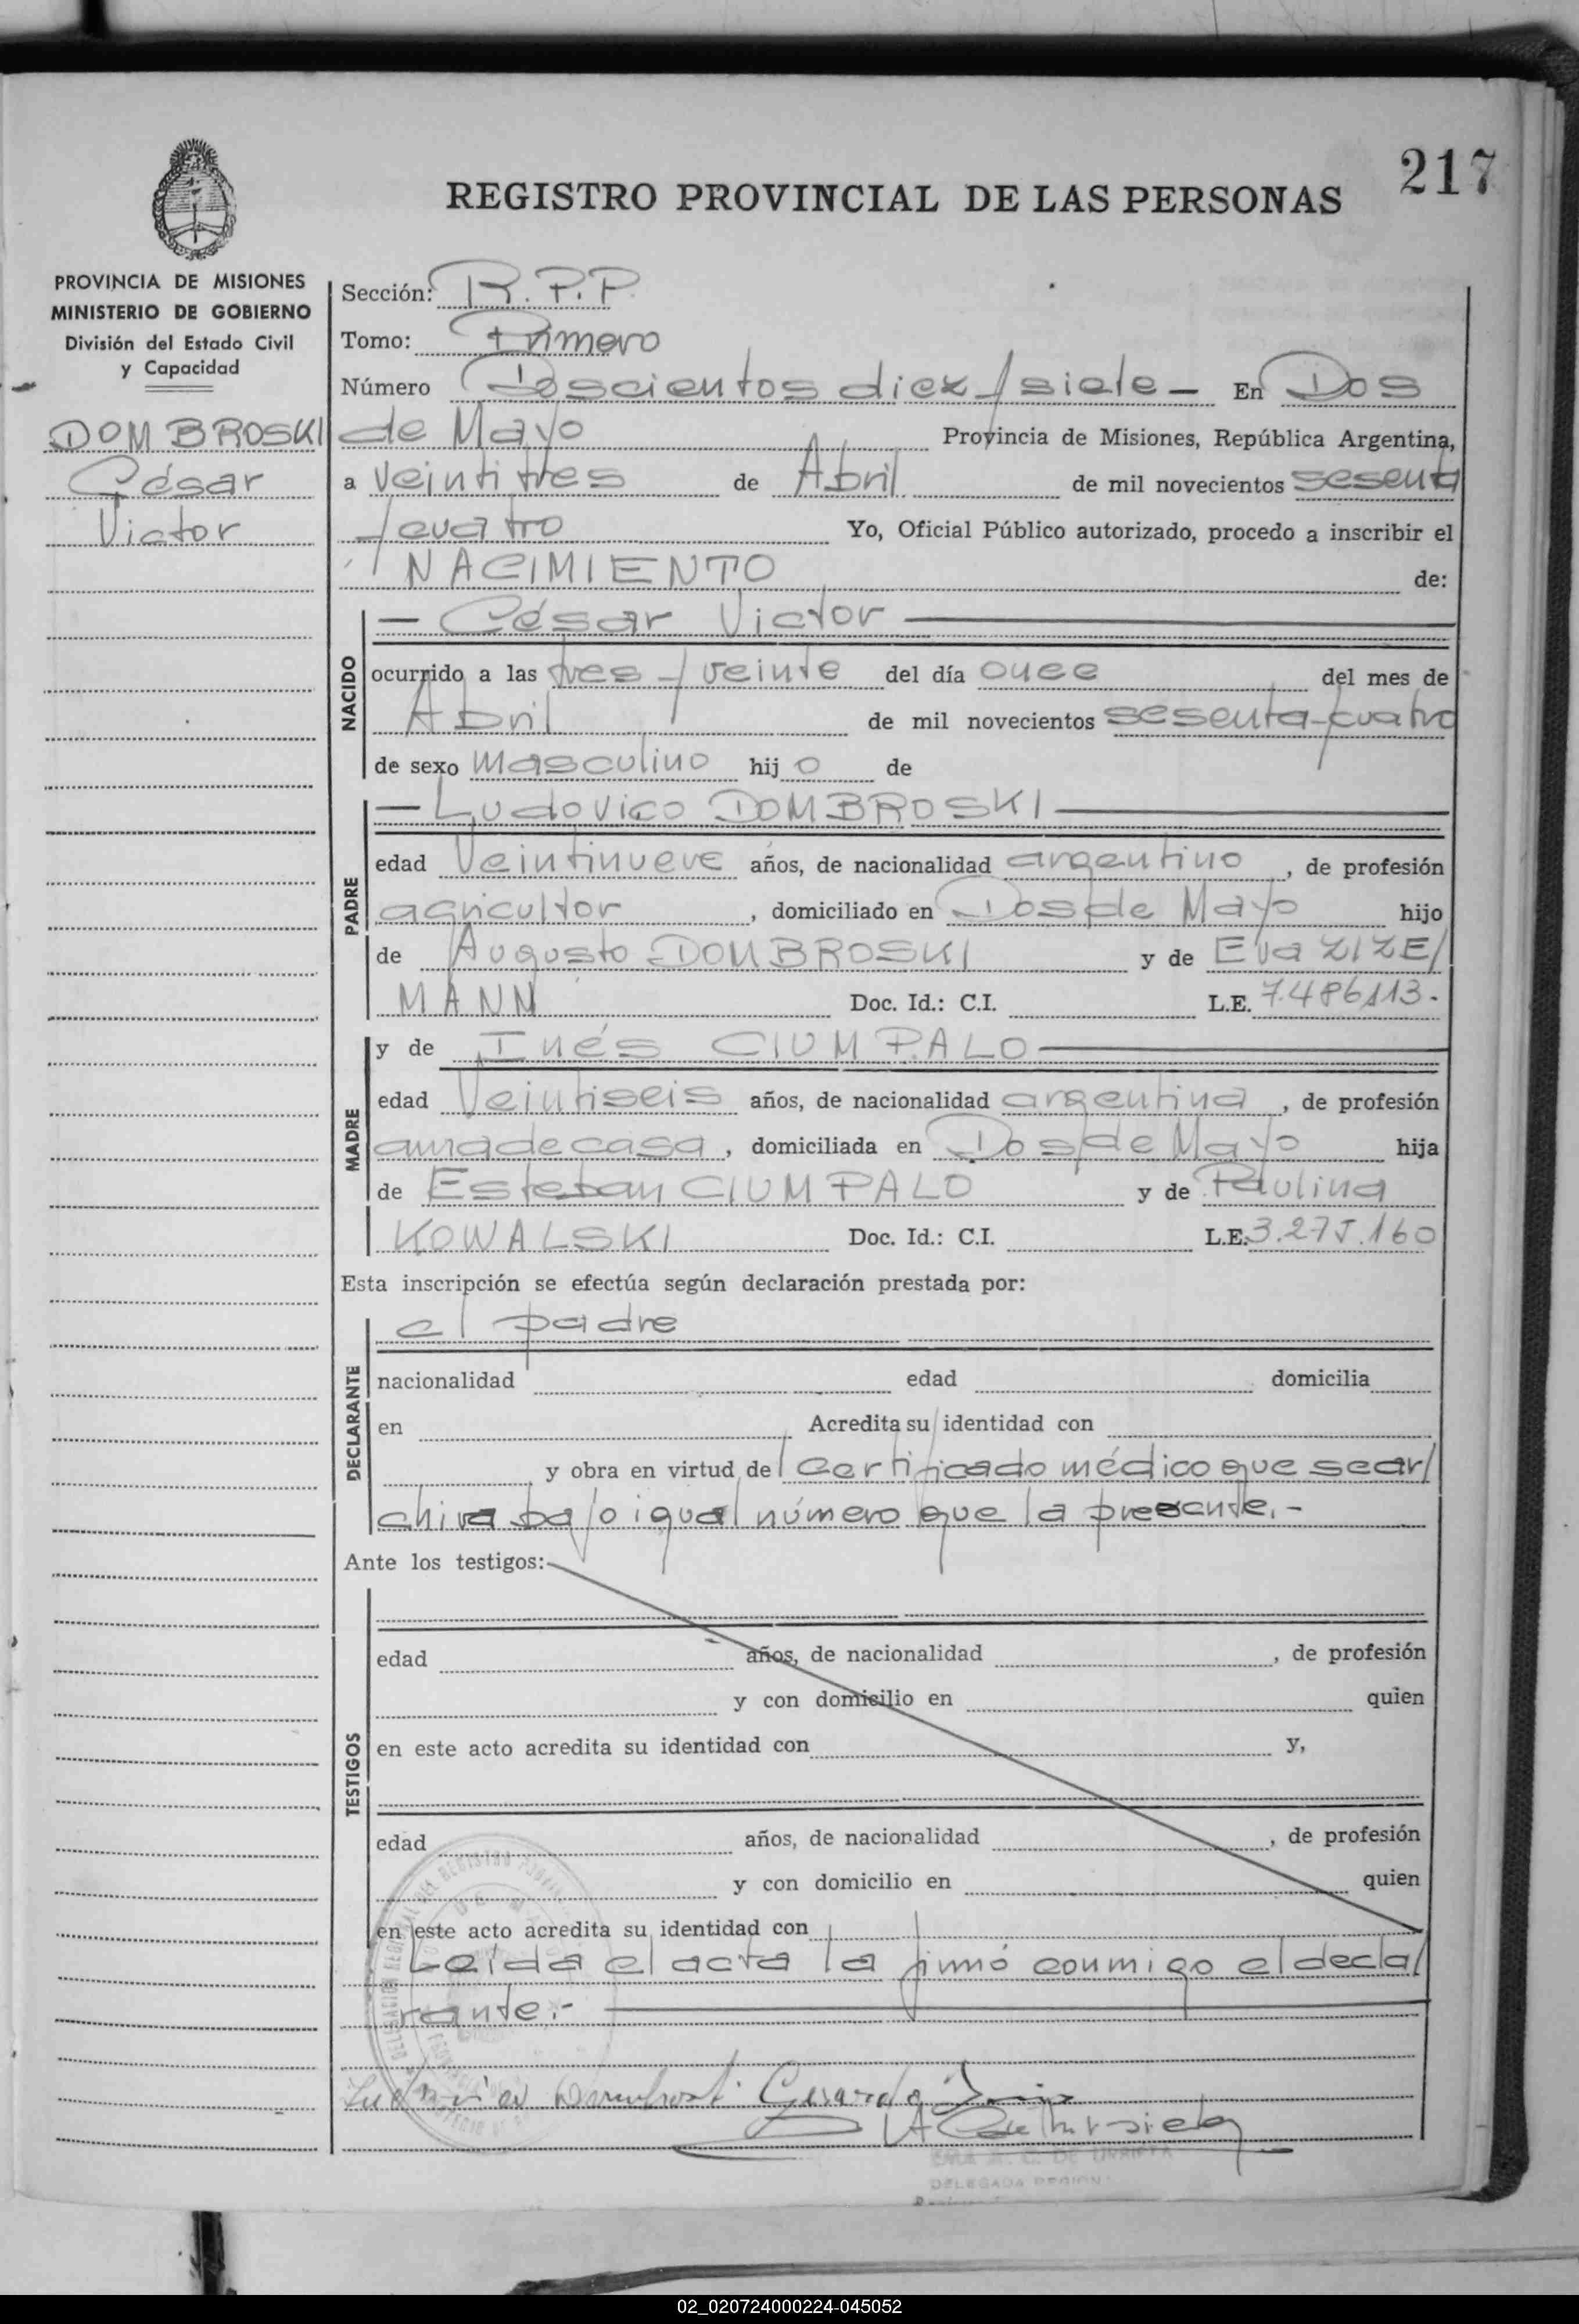 217
REGISTRO PROVINCIAL DE LAS PERSONAS
PROVINCIA DE MISIONES
MINISTERIO DE GOBIERNO
División del Estado Civil
y Capacidad
DOMBROSKI
César
Victor
Sección: R.P.P.
Tomo: Primero
Número Doscientos diez y siete - En Dos
de Mayo Provincia de Misiones, República Argentina,
a veintitres de Abril de mil novecientos sesenta
y cuatro Yo, Oficial Público autorizado, procedo a inscribir el
NACIMIENTO de:
NACIDO
— César Victor —
ocurrido a las tres y veinte del día once del mes de
Abril de mil novecientos sesenta y cuatro
de sexo masculino hijo de
PADRE
— Ludovico DOMBROSKI —
edad Veintinueve años, de nacionalidad argentino, de profesión
agricultor, domiciliado en Dos de Mayo hijo
de Augusto DOMBROSKI y de Eva ZIZE/
MANN Doc. Id.: C.I. L.E. 7.486113.
MADRE
y de Inés CIUMPALO —
edad Veintiseis años, de nacionalidad argentina, de profesión
ama de casa, domiciliada en Dos de Mayo hija
de Esteban CIUMPALO y de Paulina
KOWALSKI Doc. Id.: C.I. L.E. 3.275.160
Esta inscripción se efectúa según declaración prestada por:
DECLARANTE
el padre
nacionalidad edad domicilia
en Acredita su identidad con
y obra en virtud de certificado médico que se ar/
chiva bajo igual número que la presente.-
Ante los testigos:
TESTIGOS
edad años, de nacionalidad , de profesión
y con domicilio en quien
en este acto acredita su identidad con y,
edad años, de nacionalidad , de profesión
y con domicilio en quien
en este acto acredita su identidad con
Leída el acta la firmó conmigo el decla/
rante.-
DELEGADA
02_020724000224-045052